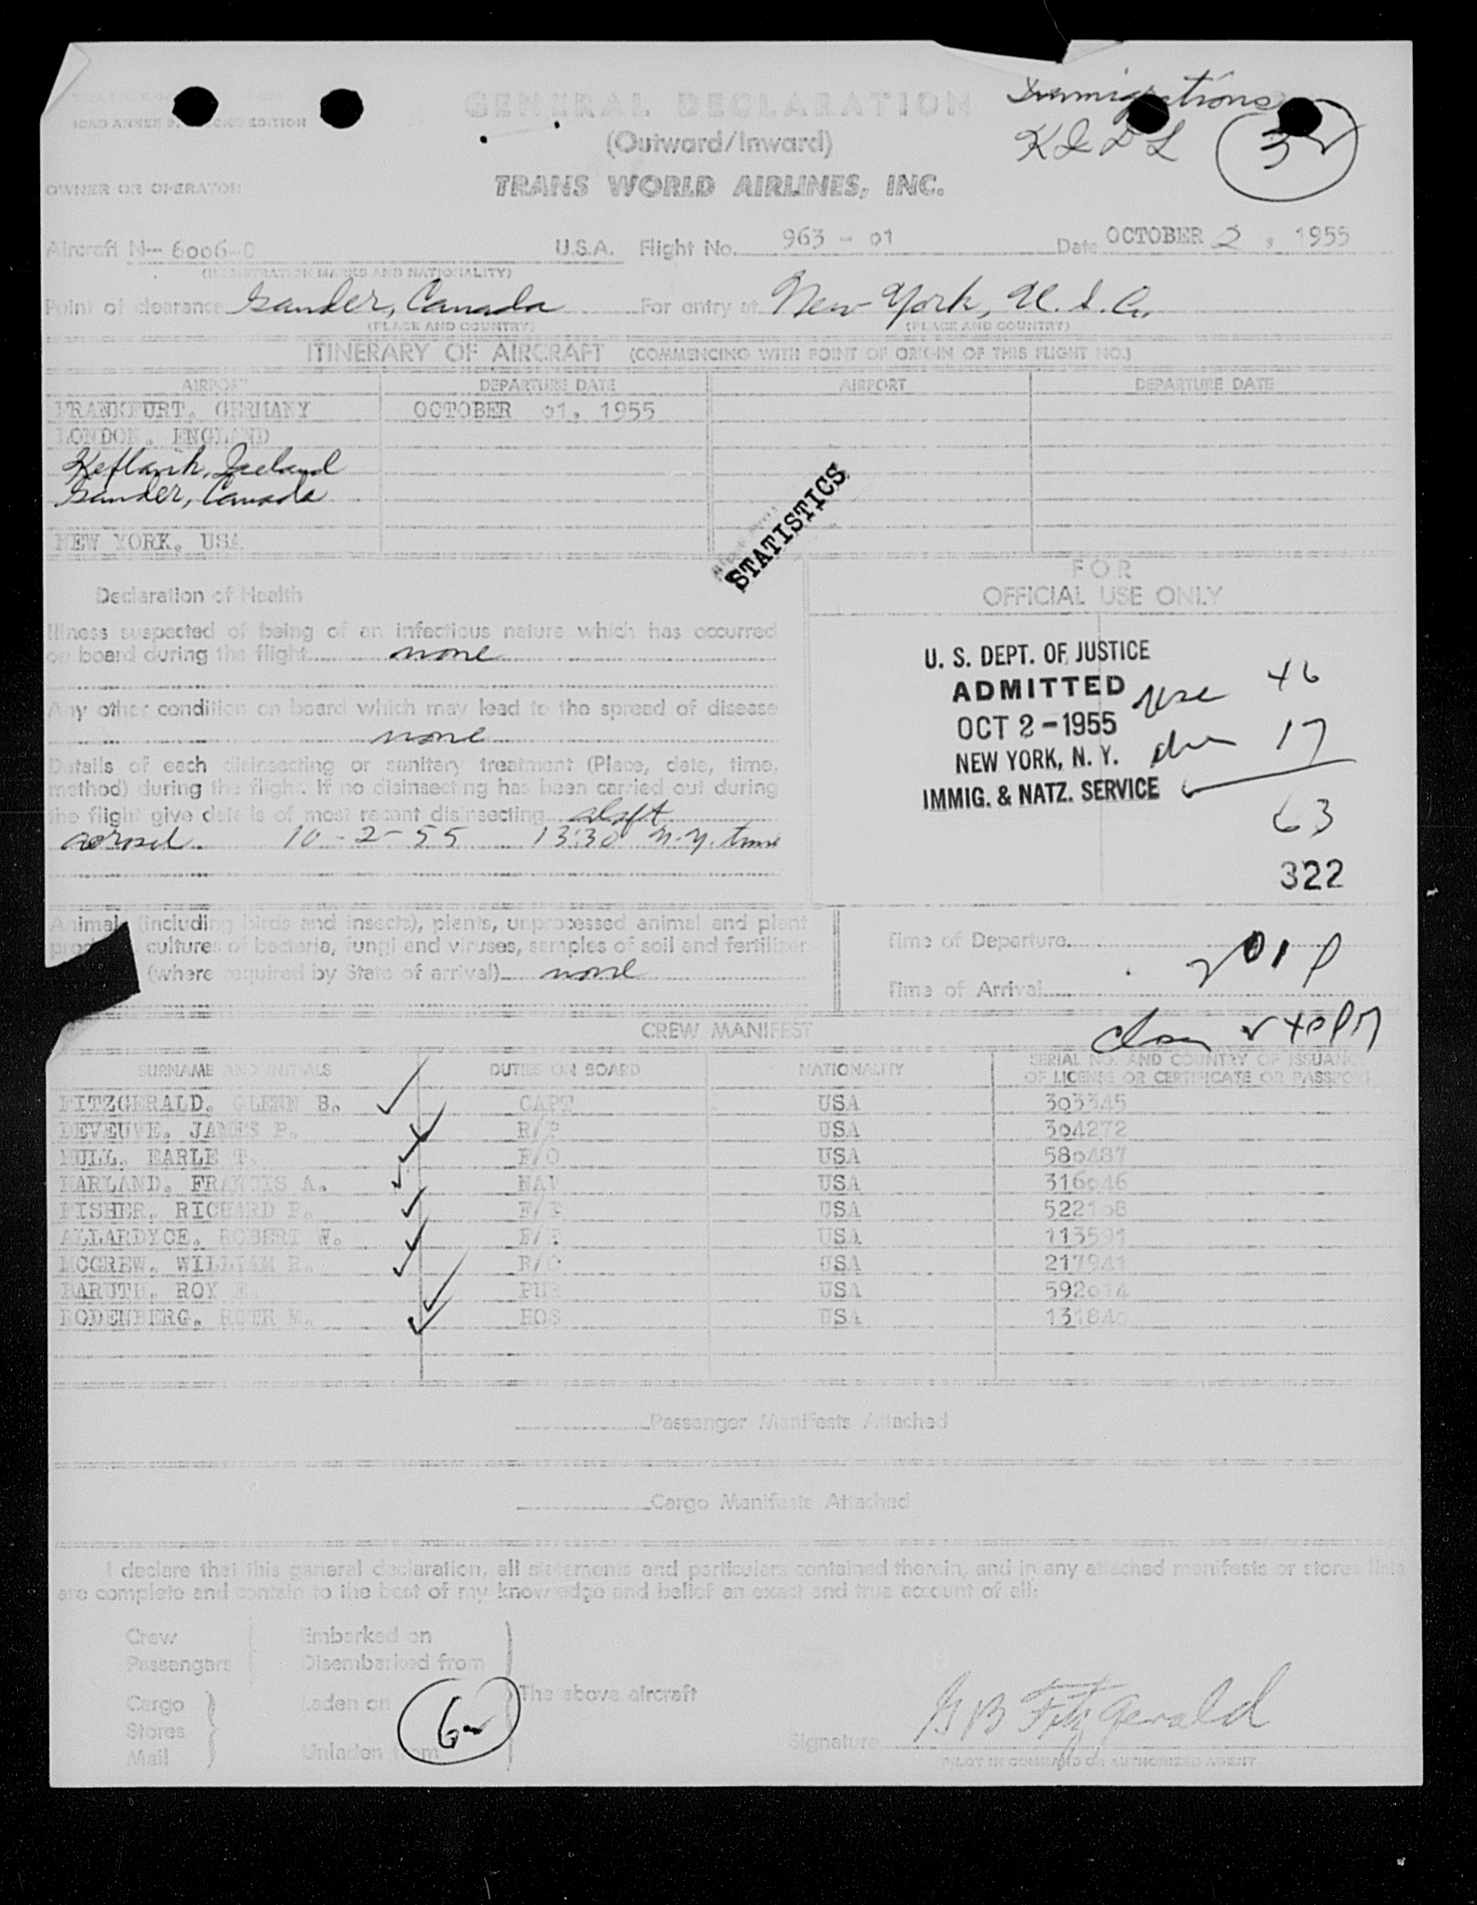 Immigrations
GENERAL DECLARATION
(Outward/Inward)
KIDL
OWNER OR OPERATOR
TRANS WORLD AIRLINES, INC.
Aircraft N- 6006-C U.S.A. Flight No. 963 - 01 Date OCTOBER 2, 1955
(REGISTRATION MARKS AND NATIONALITY)
Point of clearance Gander, Canada For entry at New York, U.S.A.
(PLACE AND COUNTRY) (PLACE AND COUNTRY)
ITINERARY OF AIRCRAFT (COMMENCING WITH POINT OF ORIGIN OF THIS FLIGHT NO.)
AIRPORT DEPARTURE DATE AIRPORT DEPARTURE DATE
FRANKFURT, GERMANY OCTOBER 01, 1955
LONDON, ENGLAND
Keflavik, Iceland
Gander, Canada
NEW YORK, USA
STATISTICS
FOR
OFFICIAL USE ONLY
Declaration of Health
Illness suspected of being of an infectious nature which has occurred
on board during the flight none
Any other condition on board which may lead to the spread of disease
none
Details of each disinsecting or sanitary treatment (Place, date, time,
method) during the flight. If no disinsecting has been carried out during
the flight give details of most recent disinsecting
aerosol 10-2-55 13:30 N.Y. time
U. S. DEPT. OF JUSTICE
ADMITTED 46
OCT 2 - 1955
NEW YORK, N. Y. 17
IMMIG. & NATZ. SERVICE
63
322
Animals (including birds and insects), plants, unprocessed animal and plant
cultures of bacteria, fungi and viruses, samples of soil and fertilizer
(where required by State of arrival) none
Time of Departure
Time of Arrival
CREW MANIFEST
SURNAME AND INITIALS DUTIES ON BOARD NATIONALITY SERIAL NO. AND COUNTRY OF ISSUANCE
OF LICENSE OR CERTIFICATE OR PASSPORT
FITZGERALD, GLENN B. CAPT USA 303345
DEVEUVE, JAMES P. R/P USA 304272
MULL, EARLE T. F/O USA 580487
HARLAND, FRANCIS A. NAV USA 316046
FISHER, RICHARD USA
ALLARDYCE, ROBERT W. USA 113591
MCGREW, WILLIAM R. USA 217941
BARUTH, ROY PUR USA
RODENBERG, RUTH M. HOS USA
Passenger Manifests Attached
Cargo Manifests Attached
I declare that this general declaration, all statements and particulars contained therein, and in any attached manifests or stores lists
are complete and contain to the best of my knowledge and belief an exact and true account of all:
Crew Embarked on
Passengers Disembarked from
Cargo Laden on The above aircraft
Stores
Mail Unladen from
Signature G B Fitzgerald
PILOT IN COMMAND OR AUTHORIZED AGENT